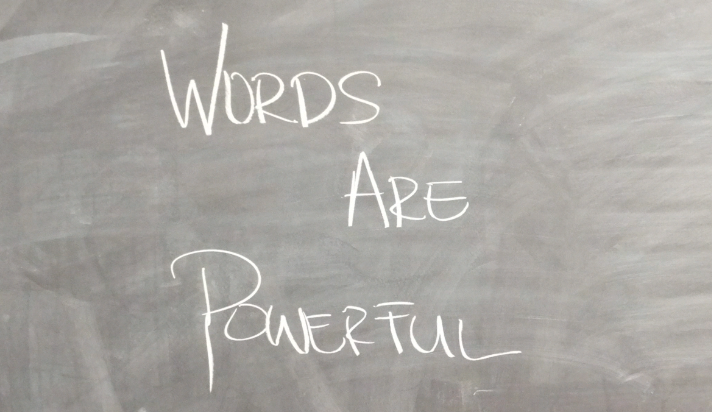 WORDS
ARE
POWERFUL